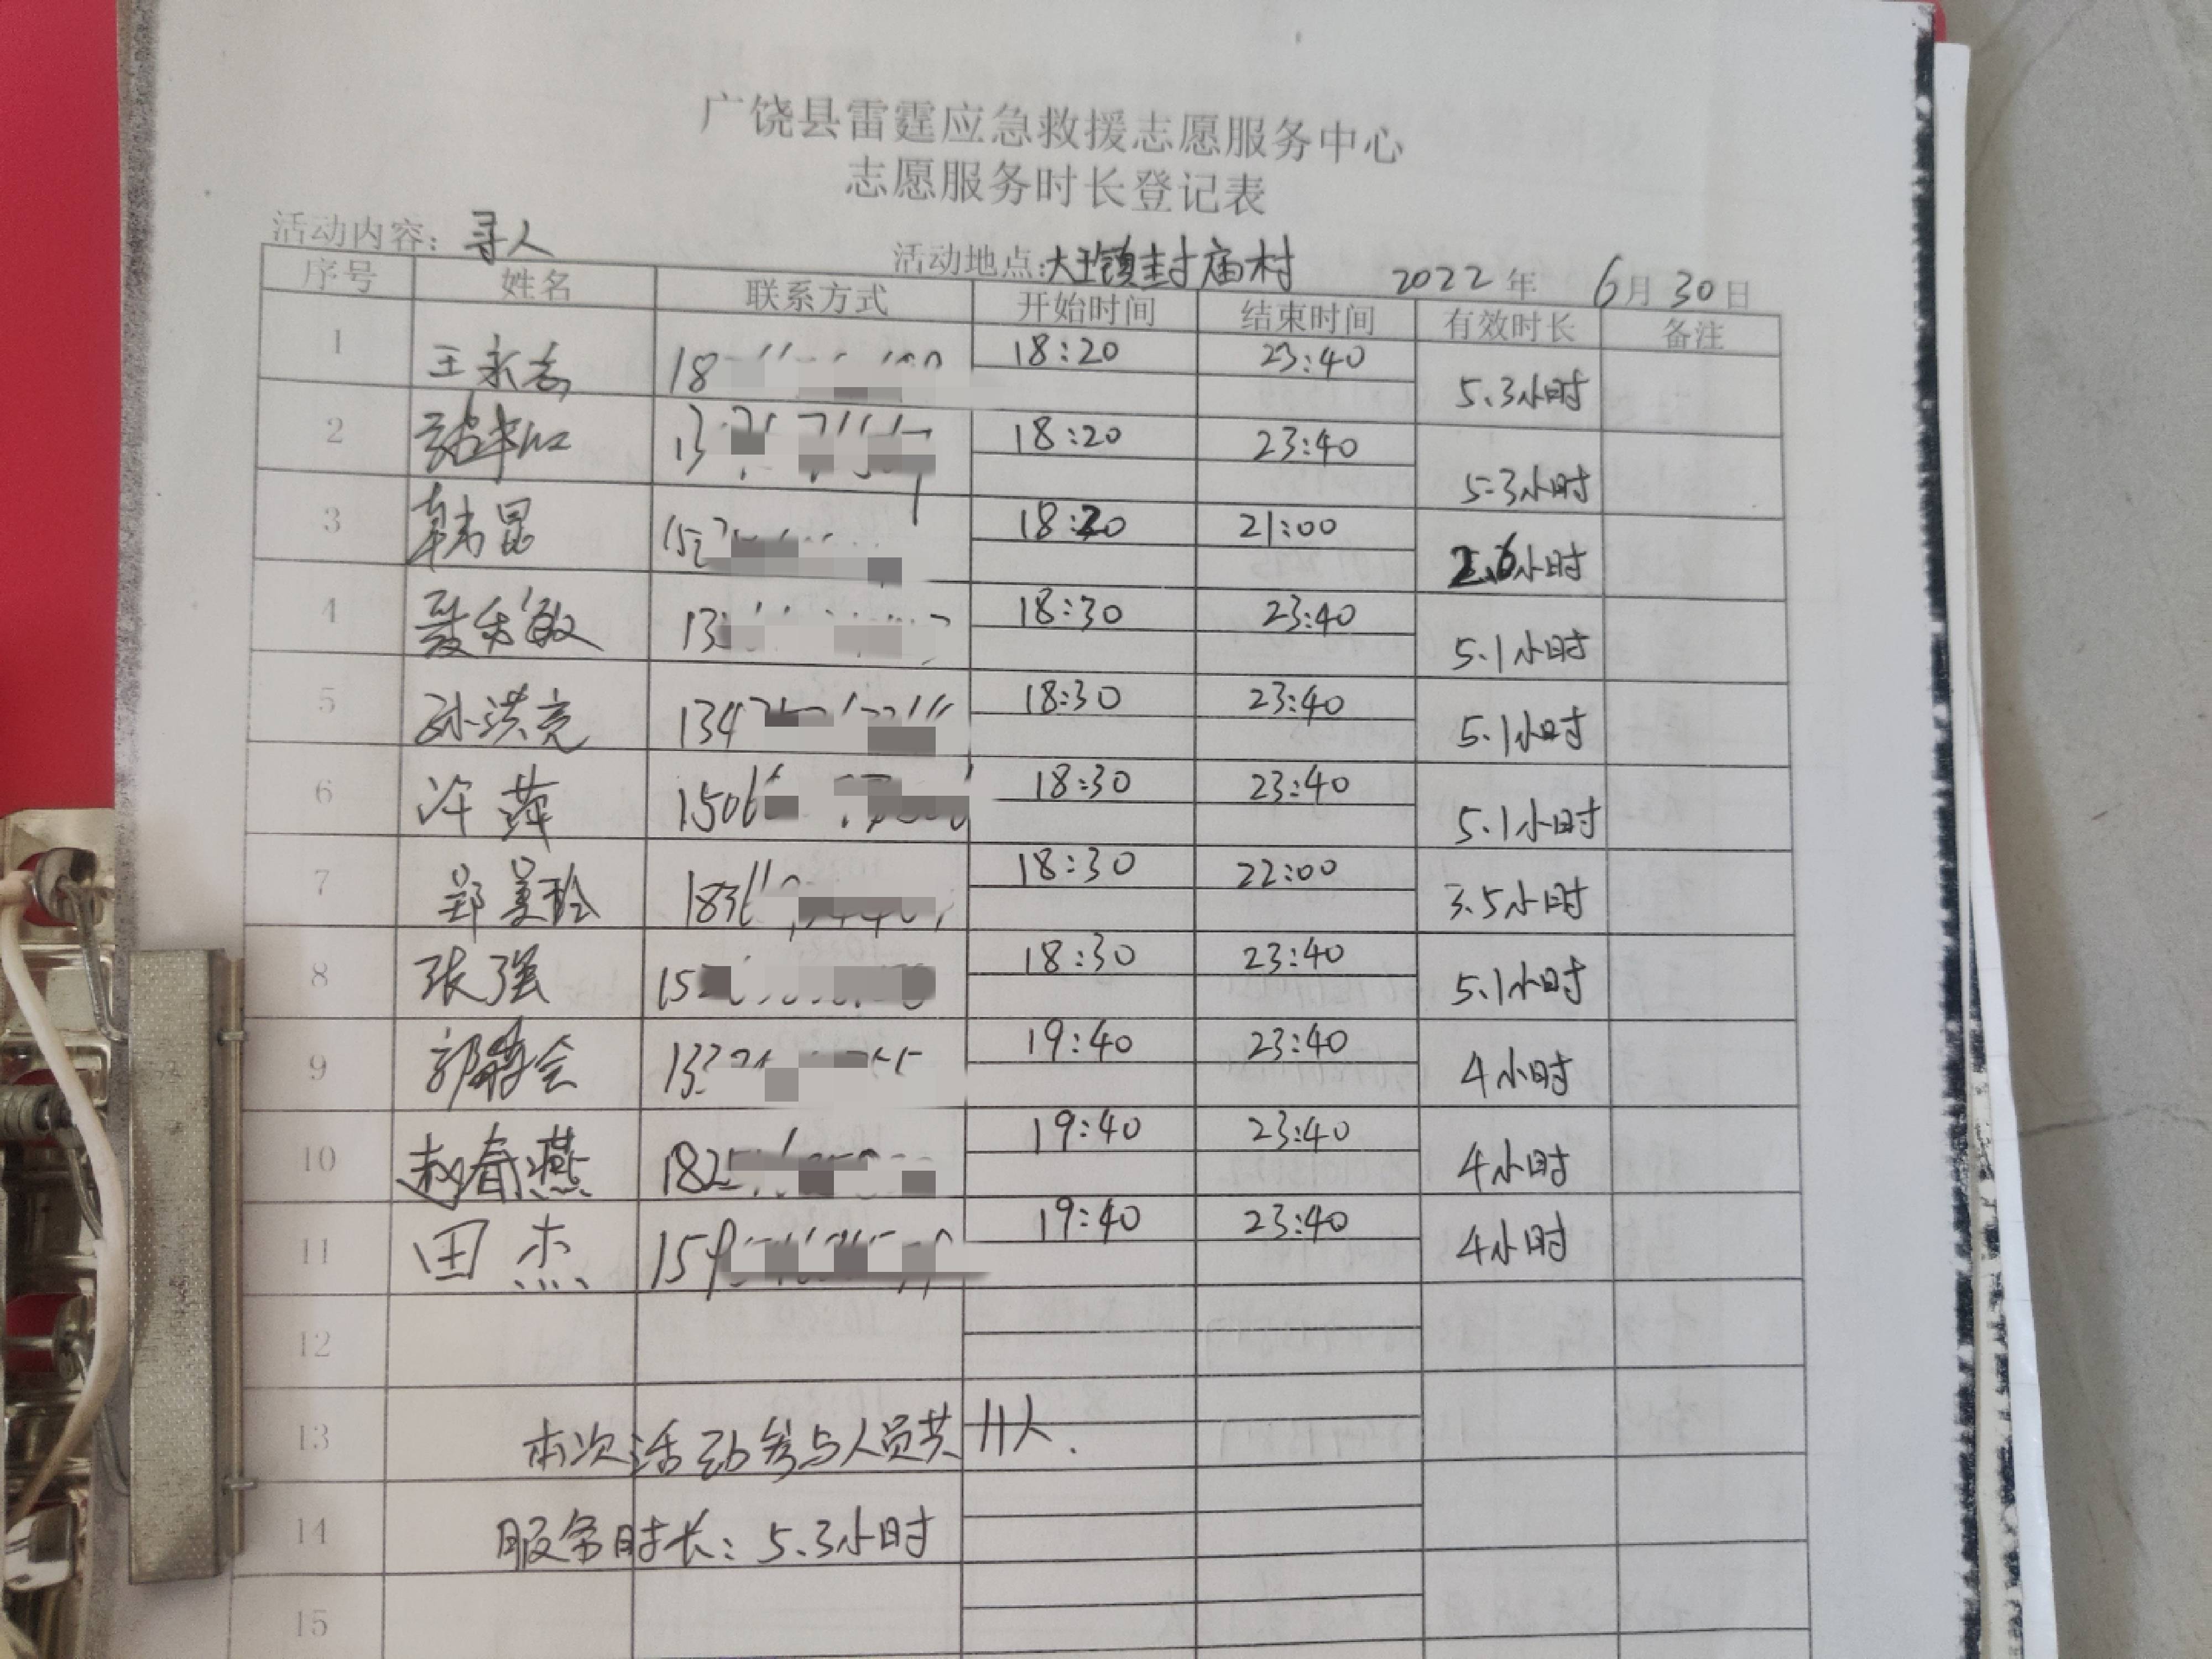 广饶县雷霆应急救援志愿服务中心
志愿服务时长登记表
活动内容: 寻人 活动地点: 大王镇封庙村 2022年 6月30日
序号 姓名 联系方式 开始时间 结束时间 有效时长 备注
1 王永志 18 18:20 23:40 5.3小时
2 13 18:20 23:40 5.3小时
3 韩昆 15 18:20 21:00 2.6小时
4 聂合敏 13 18:30 23:40 5.1小时
5 孙洪亮 134 18:30 23:40 5.1小时
6 许萍 1506 18:30 23:40 5.1小时
7 郑美玲 183 18:30 22:00 3.5小时
8 张强 15 18:30 23:40 5.1小时
9 郭 会 133 19:40 23:40 4小时
10 赵春燕 182 19:40 23:40 4小时
11 田杰 159 19:40 23:40 4小时
12
13 本次活动参与人员共11人.
14 服务时长: 5.3小时
15